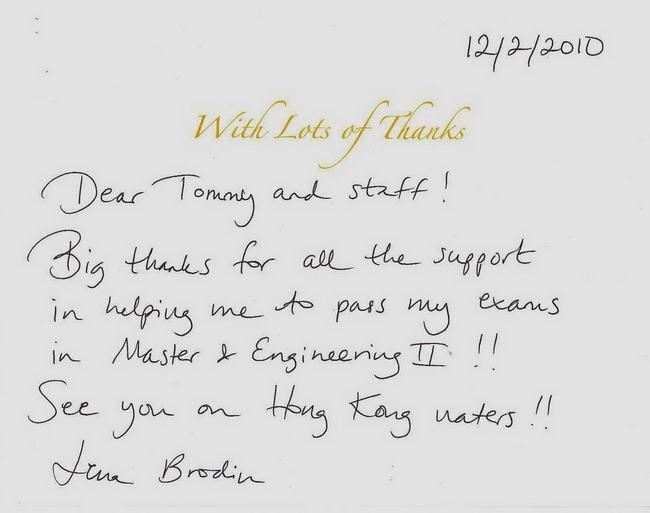 12/2/2010
With Lots of Thanks
Dear Tommy and staff!
Big thanks for all the support
in helping me to pass my exams
in Master & Engineering II !!
See you on Hong Kong waters!!
Lena Brodin